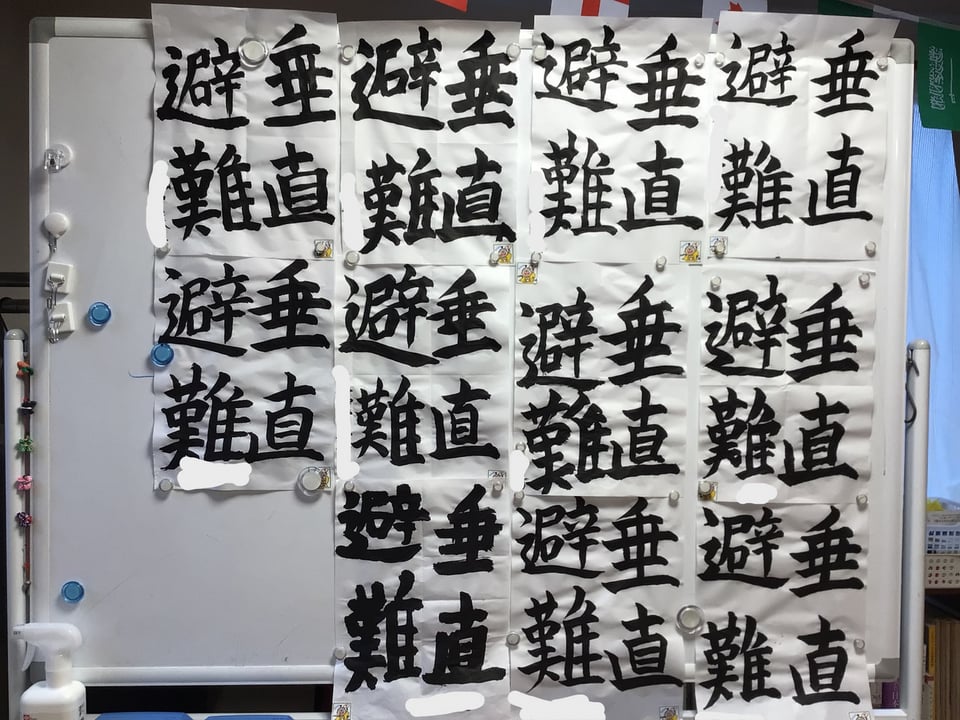 垂直
避難
垂直
避難
垂直
避難
垂直
避難
垂直
避難
垂直
避難
垂直
避難
垂直
避難
垂直
避難
垂直
避難
垂直
避難